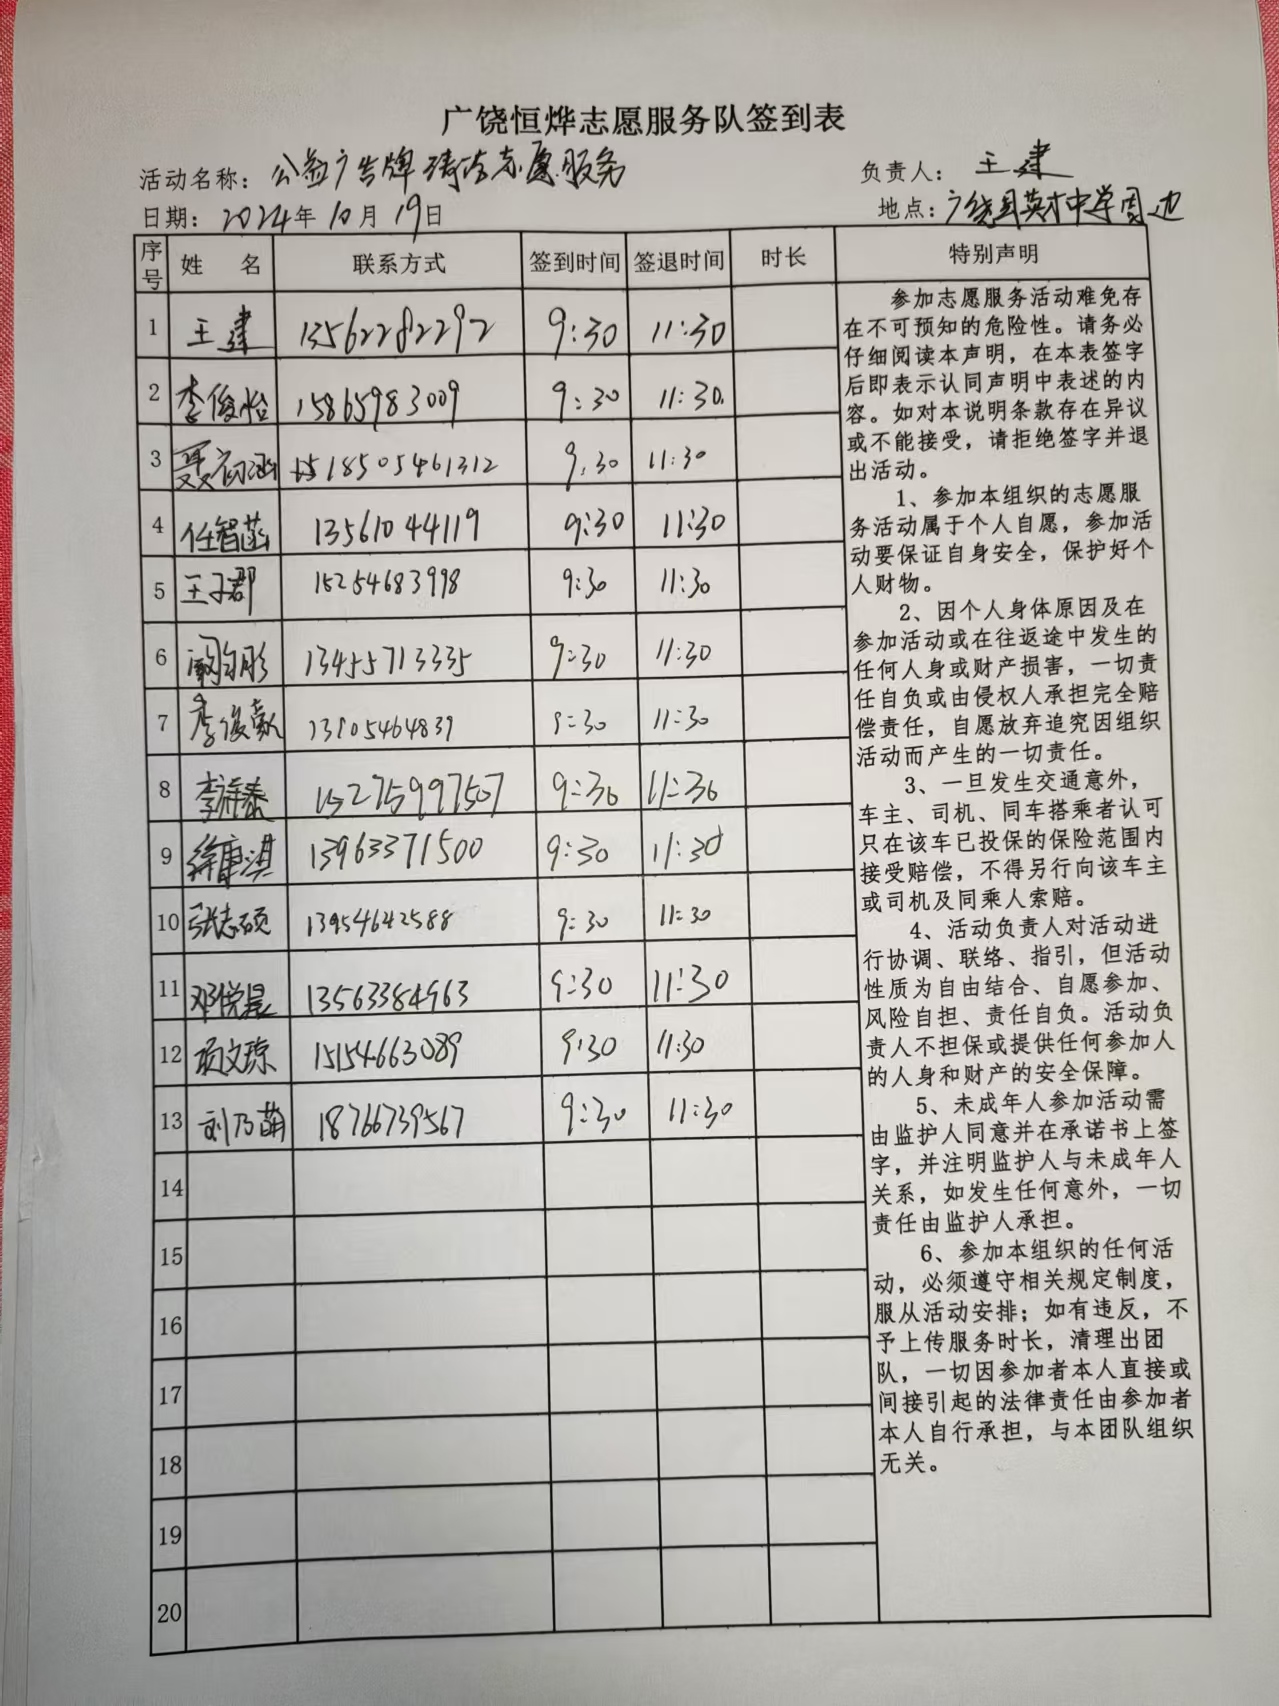 广饶恒烨志愿服务队签到表
活动名称：公益广告牌清洁志愿服务 负责人：王建
日期：2024年10月19日 地点：广饶县英才中学周边
序号 姓 名 联系方式 签到时间 签退时间 时长 特别声明
1 王建 13562282292 9:30 11:30
2 李俊怡 15865983009 9:30 11:30.
3 聂 涵 18505461312 9:30 11:30
4 任智菡 13561044119 9:30 11:30
5 王子郡 15254683998 9:30 11:30
6 13455713335 9:30 11:30
7 李俊 13905464839 9:30 11:30
8 李祥泰 15275997507 9:30 11:30
9 徐康淇 13963371500 9:30 11:30
10 张志硕 13954642588 9:30 11:30
11 邓悦晨 13563384963 9:30 11:30
12 项文琼 15154663089 9:30 11:30
13 刘乃萌 18766739567 9:30 11:30
14
15
16
17
18
19
20
参加志愿服务活动难免存
在不可预知的危险性。请务必
仔细阅读本声明，在本表签字
后即表示认同声明中表述的内
容。如对本说明条款存在异议
或不能接受，请拒绝签字并退
出活动。
1、参加本组织的志愿服
务活动属于个人自愿，参加活
动要保证自身安全，保护好个
人财物。
2、因个人身体原因及在
参加活动或在往返途中发生的
任何人身或财产损害，一切责
任自负或由侵权人承担完全赔
偿责任，自愿放弃追究因组织
活动而产生的一切责任。
3、一旦发生交通意外，
车主、司机、同车搭乘者认可
只在该车已投保的保险范围内
接受赔偿，不得另行向该车主
或司机及同乘人索赔。
4、活动负责人对活动进
行协调、联络、指引，但活动
性质为自由结合、自愿参加、
风险自担、责任自负。活动负
责人不担保或提供任何参加人
的人身和财产的安全保障。
5、未成年人参加活动需
由监护人同意并在承诺书上签
字，并注明监护人与未成年人
关系，如发生任何意外，一切
责任由监护人承担。
6、参加本组织的任何活
动，必须遵守相关规定制度，
服从活动安排；如有违反，不
予上传服务时长，清理出团
队，一切因参加者本人直接或
间接引起的法律责任由参加者
本人自行承担，与本团队组织
无关。